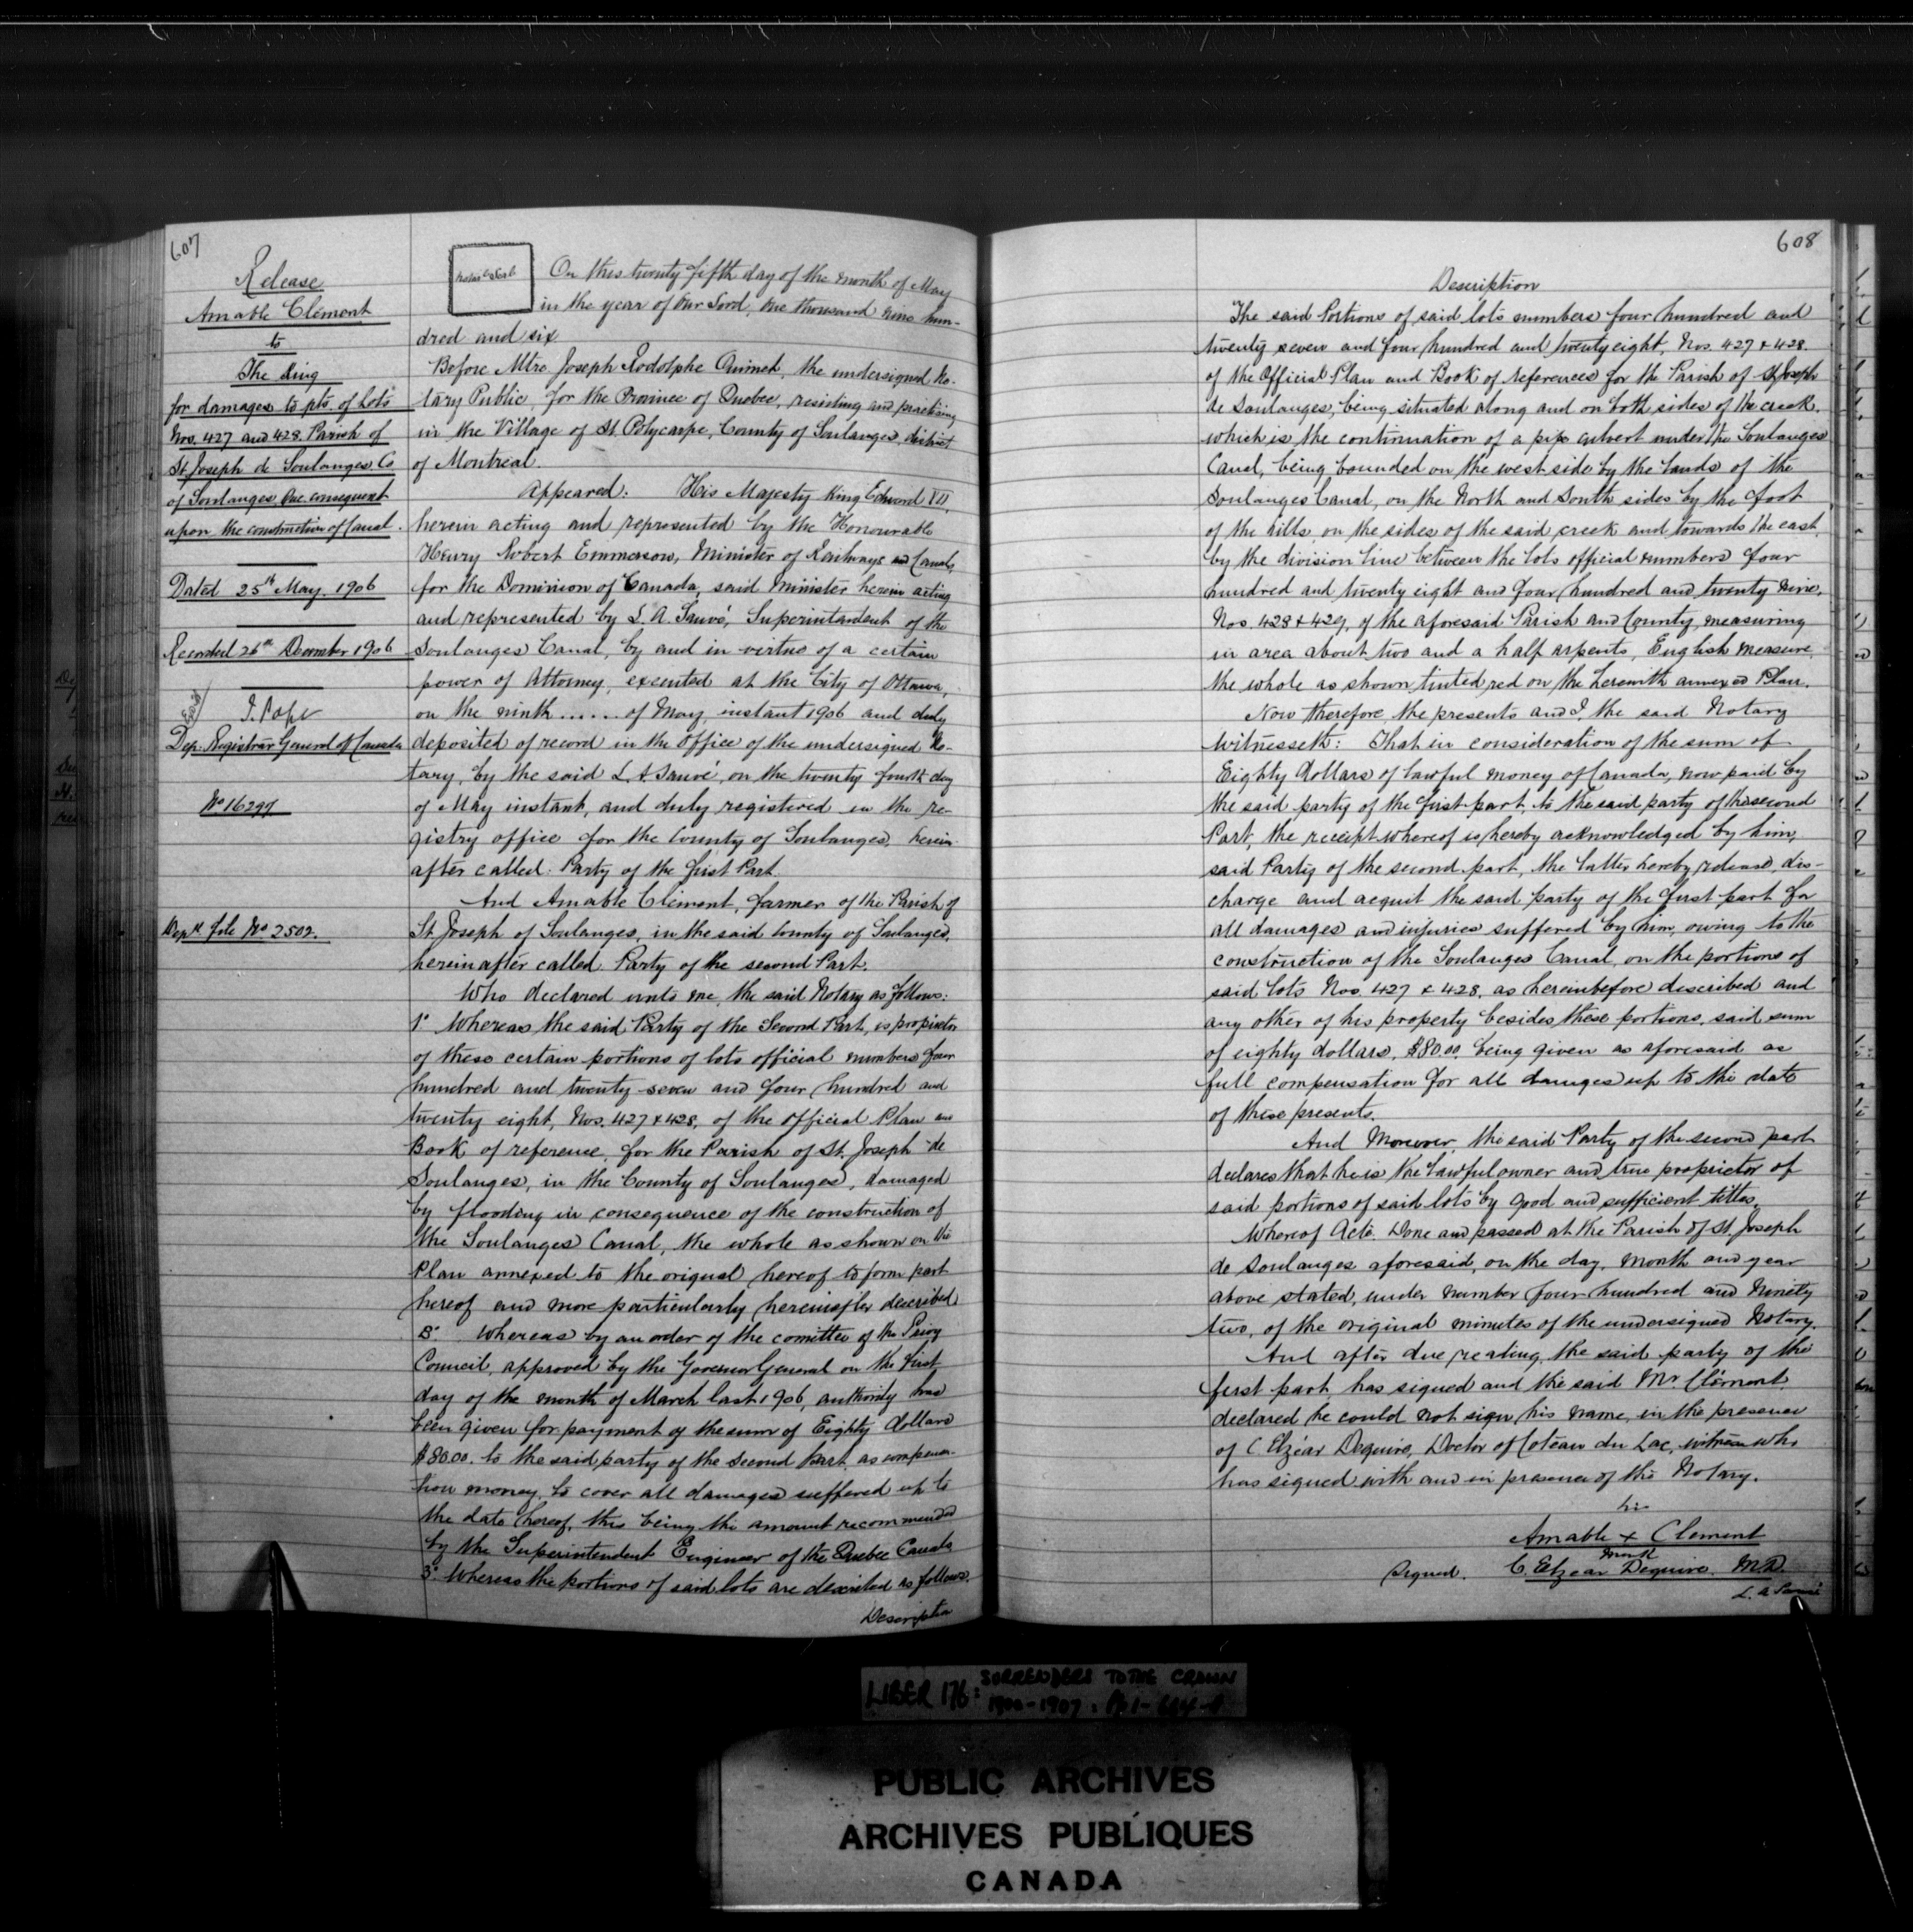 607
Release
Amable Clément
to
The King
for damages to pts. of Lots
Nos. 427 and 428. Parish of
St. Joseph de Soulanges Co
of Soulanges, Que. consequent
upon the construction of Canal.
Dated 25th May. 1906
Recorded 26th December 1906
J. Pope
Dep. Registrar General of Canada
No 16297
Dept. file No 2502.
On this twenty fifth day of the month of May
in the year of Our Lord, one thousand nine hun-
dred and six
Before Mtre Joseph Rodolphe the undersigned No-
tary Public, for the Province of Quebec, residing and practising
in the Village of St. Polycarpe, County of Soulanges, district
of Montreal.
Appeared: His Majesty King Edward VII,
herein acting and represented by the Honourable
Henry Robert Emmerson, Minister of Railways and Canals,
for the Dominion of Canada, said Minister herein acting
and represented by L. A. Sauvé, Superintendent of the
Soulanges Canal, by and in virtue of a certain
power of Attorney, executed at the City of Ottawa,
on the ninth ...... of May, instant 1906 and duly
deposited of record in the office of the undersigned No-
tary, by the said L. A. Sauvé, on the twenty fourth day
of May instant, and duly registered in the re-
gistry office for the County of Soulanges, herein-
after called: Party of the first Part.
And Amable Clément, farmer of the Parish of
St. Joseph of Soulanges, in the said County of Soulanges,
hereinafter called Party of the second Part.
Who declared unto me, the said Notary as follows:
1° Whereas the said Party of the Second Part, is proprietor
of these certain portions of lots official numbers four
hundred and twenty seven and four hundred and
twenty eight, Nos. 427 & 428, of the official Plan and
Book of reference, for the Parish of St. Joseph de
Soulanges, in the County of Soulanges, damaged
by flooding in consequence of the construction of
the Soulanges Canal, the whole as shown on the
Plan annexed to the original hereof to form part
hereof and more particularly hereinafter described
Whereas by an order of the comittee of the Privy
Council, approved by the Governor General on the first
day of the month of March last 1906, authority has
been given for payment of the sum of Eighty dollars
$80.00. to the said party of the Second Part, as compensa-
tion money, to cover all damages suffered up to
the date hereof, this being the amount recommended
by the Superintendent Engineer of the Quebec Canals
3° Whereas the portions of said lots are described as follows.
Description
608
Description
The said Portions of said lots numbers four hundred and
twenty seven and four hundred and twenty eight, Nos. 427 & 428.
of the Official Plan and Book of references for the Parish of St Joseph
de Soulanges, being situated along and on both sides of the creek.
which is the continuation of a pipe culvert under the Soulanges
Canal, being bounded on the west side by the lands of the
Soulanges Canal, on the North and South sides by the foot
of the hills, on the sides of the said creek and towards the east,
by the division line between the lots official numbers four
hundred and twenty eight and four hundred and twenty nine,
Nos. 428 & 429, of the aforesaid Parish and County, measuring
in area about two and a half arpents, English measure,
the whole as shown tinted red on the herewith annexed Plan.
Now therefore, the presents and I, the said Notary
Witnesseth: That in consideration of the sum of
Eighty dollars of lawful money of Canada, now paid by
the said party of the first part, to the said party of the second
Part, the receipt whereof is hereby acknowledged by him,
said Party of the second part, the latter hereby release, dis-
charge and acquit the said party of the first part for
all damages and injuries suffered by him, owing to the
construction of the Soulanges Canal, on the portions of
said lots Nos. 427 & 428, as hereinbefore described and
any other of his property besides these portions, said sum
of eighty dollars, $80.00, being given as aforesaid as
full compensation for all damages up to the date
of these presents.
And Moreover, the said Party of the second part
declares that he is the lawful owner and true proprietor of
said portions of said lots by good and sufficient titles,
Whereof Acte. Done and passed at the Parish of St. Joseph
de Soulanges aforesaid, on the day, month and year
above stated, under number four hundred and Ninety
two, of the original minutes of the undersigned Notary.
And after due reading, the said party of the
first part, has signed and the said Mr. Clément
declared he could not sign his name, in the presence
of C. Elzéar Dequire, Doctor of Coteau du Lac, witness who
has signed with and in presence of the Notary.
his
Amable x Clement
mark
Signed. C. Elzear Dequire. M.D.
L. A Sauvé
LIBER 176: SURRENDERS TO THE CROWN
1900-1907:
PUBLIC ARCHIVES
ARCHIVES PUBLIQUES
CANADA